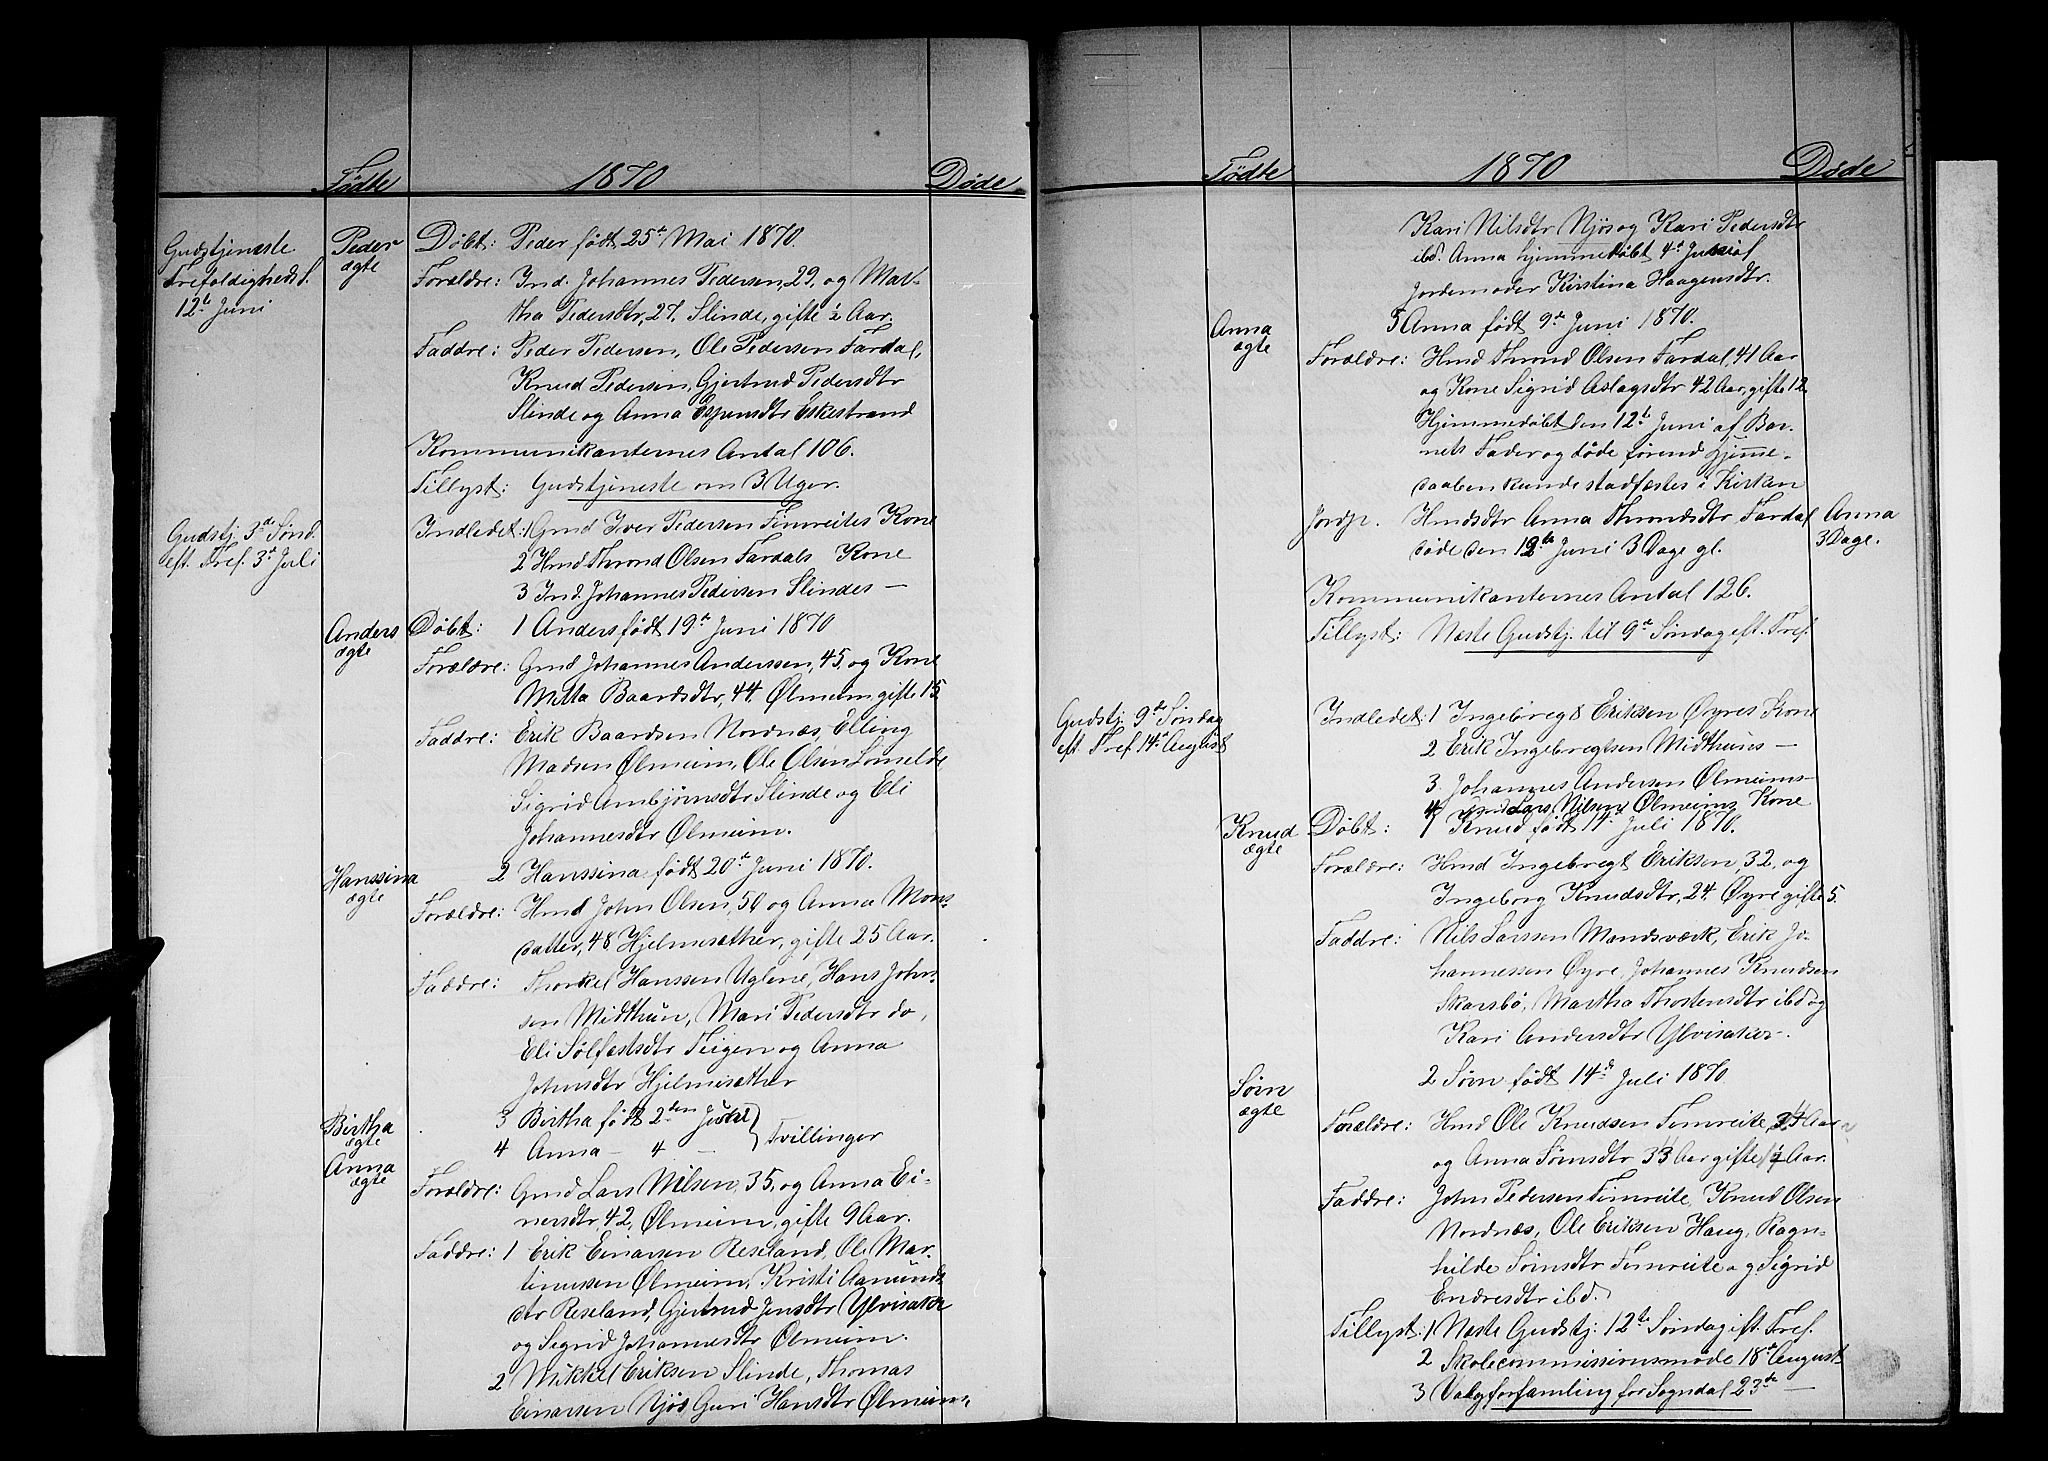 Fødte 1870 Døde
Gudstjeneste
Trefoldigheds f.
12te Juni
Peder
ægte
Døbt: Peder født 25de Mai 1870.
Forældre: Ind. Johannes Pedersen, 29, og Mar-
tha Pedersdtr, 27, Slinde, gifte ½ Aar.
Faddre: Peder Pedersen, Ole Pedersen Fardal,
Knud Pedersen, Gjertrud Pedersdtr
Slinde og Anna Espensdtr Eskestrand
Kommunikanternes Antal 106.
Tillyst: Gudstjeneste om 3 Uger.
Gudstj. 3de Sønd.
eft. Tref. 3de Juli
Indledet: 1 Gmd Iver Pedersen Fimreites Kone
2 Hmd Thrond Olsen Fardals Kone
3 Ind. Johannes Pedersen Slindes —
Anders
ægte
Døbt: 1 Anders født 19de Juni 1870
Forældre: Gmd Johannes Anderssen, 45, og Kone
Mitta Baardsdtr, 44, Ølmeim, gifte 15
Faddre: Erik Baardsen Nordnæs, Elling
Madsen Ølmeim, Ole Olsen Lomelde,
Sigrid Ambjørnsdtr Slinde og Eli
Johannesdtr Ølmeim.
Hanssina
ægte
2 Hanssina født 20de Juni 1870.
Forældre: Hmd John Olsen, 50 og Anna Mons-
datter, 48 Hjelmesæther, gifte 25 Aar.
Faddre: Thorkel Hanssen Uglene, Hans John-
sen Midthun, Mari Pedersdtr do,
Eli Sølfæstsdtr Teigen og Anna
Johnsdtr Hjelmesæther
Birtha
ægte
Anna
ægte
3 Birtha født 2den Juni
4 Anna — 4 — } Tvillinger
Forældre: Gmd Lars Nilsen, 35, og Anna Ei-
nersdtr, 42, Ølmeim, gifte 9 Aar.
Faddre: 1 Erik Einarsen Reseland, Ole Mar-
tinussen Ølmeim, Kristi Aamunds-
dtr Reseland, Gjertrud Jensdtr Ylvisaker
og Sigrid Johannesdtr Ølmeim.
2 Mikkel Eriksen Slinde, Thomas
Einarsen Njøs Guri Hansdtr Ølmeim,
Fødte 1870 Døde
Kari Nilsdtr Njøs og Kari Pedersdtr
ibd. Anna hjemmedøbt 4de Juni af
Jordemoder Kirstina Haagensdtr.
Anna
ægte
5 Anna født 9de Juni 1870.
Forældre: Hmd Thrond Olsen Fardal, 41 Aar
og Kone Sigrid Aslagsdtr 42 Aar, gifte 12
Hjemmedøbt den 12te Juni af Bar-
nets Fader og døde førend Hjemme-
daaben kunde stadfæstes i Kirken
Jordp. Hmdsdtr Anna Throndsdtr Fardal
døde den 12te Juni 3 Dage gl.
Anna
3 Dage.
Kommunikanternes Antal 126.
Tillyst: Næste Gudstj. til 9de Søndag eft. Tref.
Gudstj. 9de Søndag
eft. Tref. 14de August
Indledet: 1 Ingebregt Eriksen Øyres Kone
2 Erik Ingebregtsen Midthuns —
3 Johannes Andersen Ølmeims —
4 Gmd Lars Nilsen Ølmeims Kone
Knud
ægte
Døbt: 1 Knud født 11te Juli 1870.
Forældre: Hmd Ingebregt Eriksen, 32, og
Ingeborg Knudsdtr, 24, Øyre gifte 5.
Faddre: Nils Larssen Mundsværk, Erik Jo-
hannessen Øyre, Johannes Knudsen
Skarsbø, Martha Thostensdtr ibd og
Kari Andersdtr Ylvisaker.
Søvn
ægte
2 Søvn født 14de Juli 1870
Forældre: Hmd Ole Knudsen Fimreite, 34 Aar
og Anna Søvnsdtr 33 Aar gifte ½ Aar.
Faddre: John Pedersen Fimreite, Knud Olsen
Nordnæs, Ole Eriksen Haug, Ragn-
hilde Søvnsdtr Fimreite og Sigrid
Endresdtr ibd.
Tillyst: 1 Næste Gudstj. 12te Søndag eft. Tref.
2 Skolecommissionsmøde 18de August
3 Valgforsamling for Sogndal 23de —